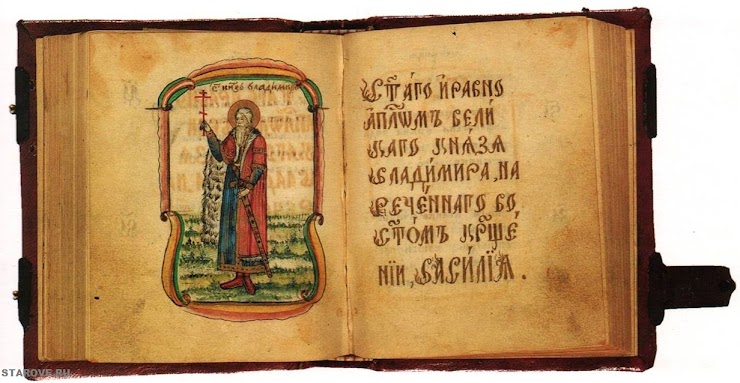 ст҃ кн҃зь владимиръ
Ст҃а́гѡ и҆ равно
а҆пл҃ѡмъ вели
каго кнѧ́зѧ
влади́мира, на
рече́ннаго во
ст҃о́мъ кр҃ще́
нїи, васи́лїѧ.
STAROVE.RU